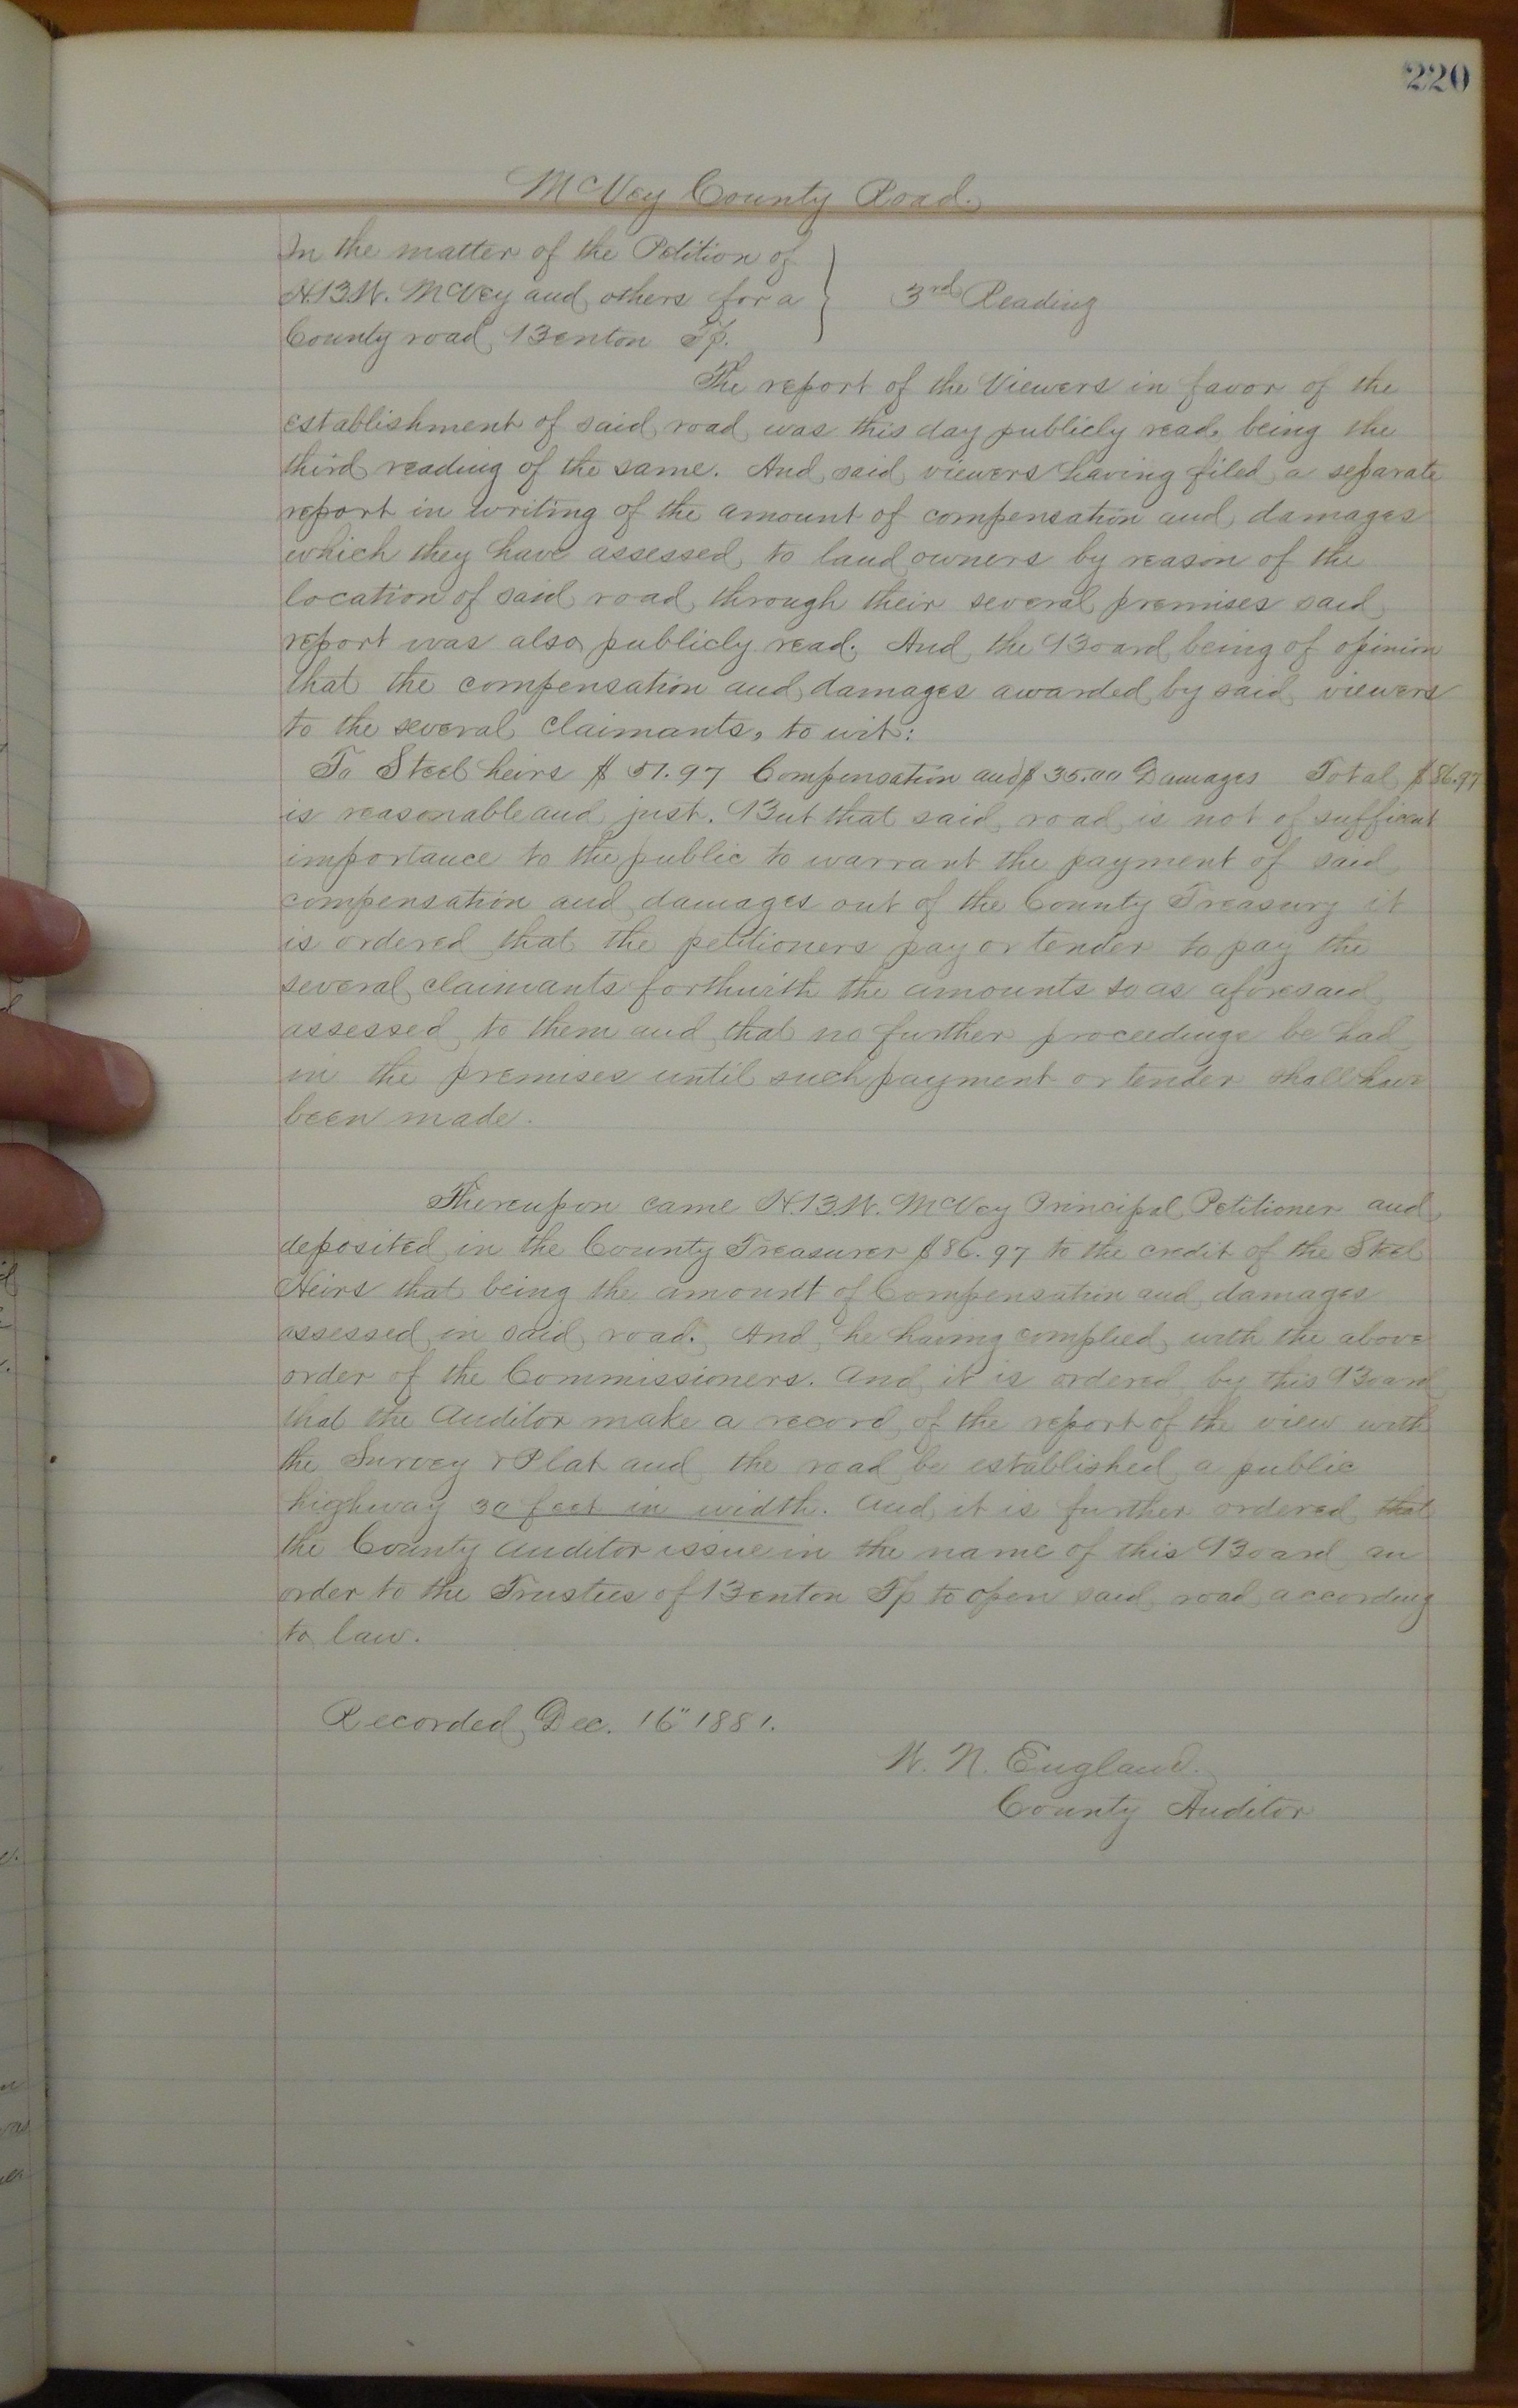 220
McVey County Road.
In the matter of the Petition of
H.B.W. McVey and others for a
County road, Benton Tp.
3rd Reading
The report of the Viewers in favor of the
establishment of said road was this day publicly read, being the
third reading of the same. And said viewers having filed a separate
report in writing of the amount of compensation and damages
which they have assessed to land owners by reason of the
location of said road through their several premises said
report was also publicly read. And the Board being of opinion
that the compensation and damages awarded by said viewers
to the several claimants, to wit:
To Steel heirs $51.97 Compensation and $35.00 Damages Total $86.97
is reasonable and just. But that said road is not of sufficent
importance to the public to warrant the payment of said
compensation and damages out of the County Treasury it
is ordered that the petitioners pay or tender to pay the
several claimants forthwith the amounts so as aforesaid
assessed to them and that no further proceedings be had
in the premises until such payment or tender shall have
been made.
Thereupon came H.B.W. McVey Principal Petitioner and
deposited in the County Treasurer $86.97 to the credit of the Steel
Heirs that being the amount of Compensation and damages
assessed in said road. And he having complied with the above
order of the Commissioners. And it is ordered by this Board
that the Auditor make a record of the report of the view with
the Survey & Plat and the road be established a public
highway 30 feet in width. And it is further ordered that
the County Auditor issue in the name of this Board an
order to the Trustees of Benton Tp to open said road according
to law.
Recorded Dec. 16" 1881.
W. N. England.
County Auditor